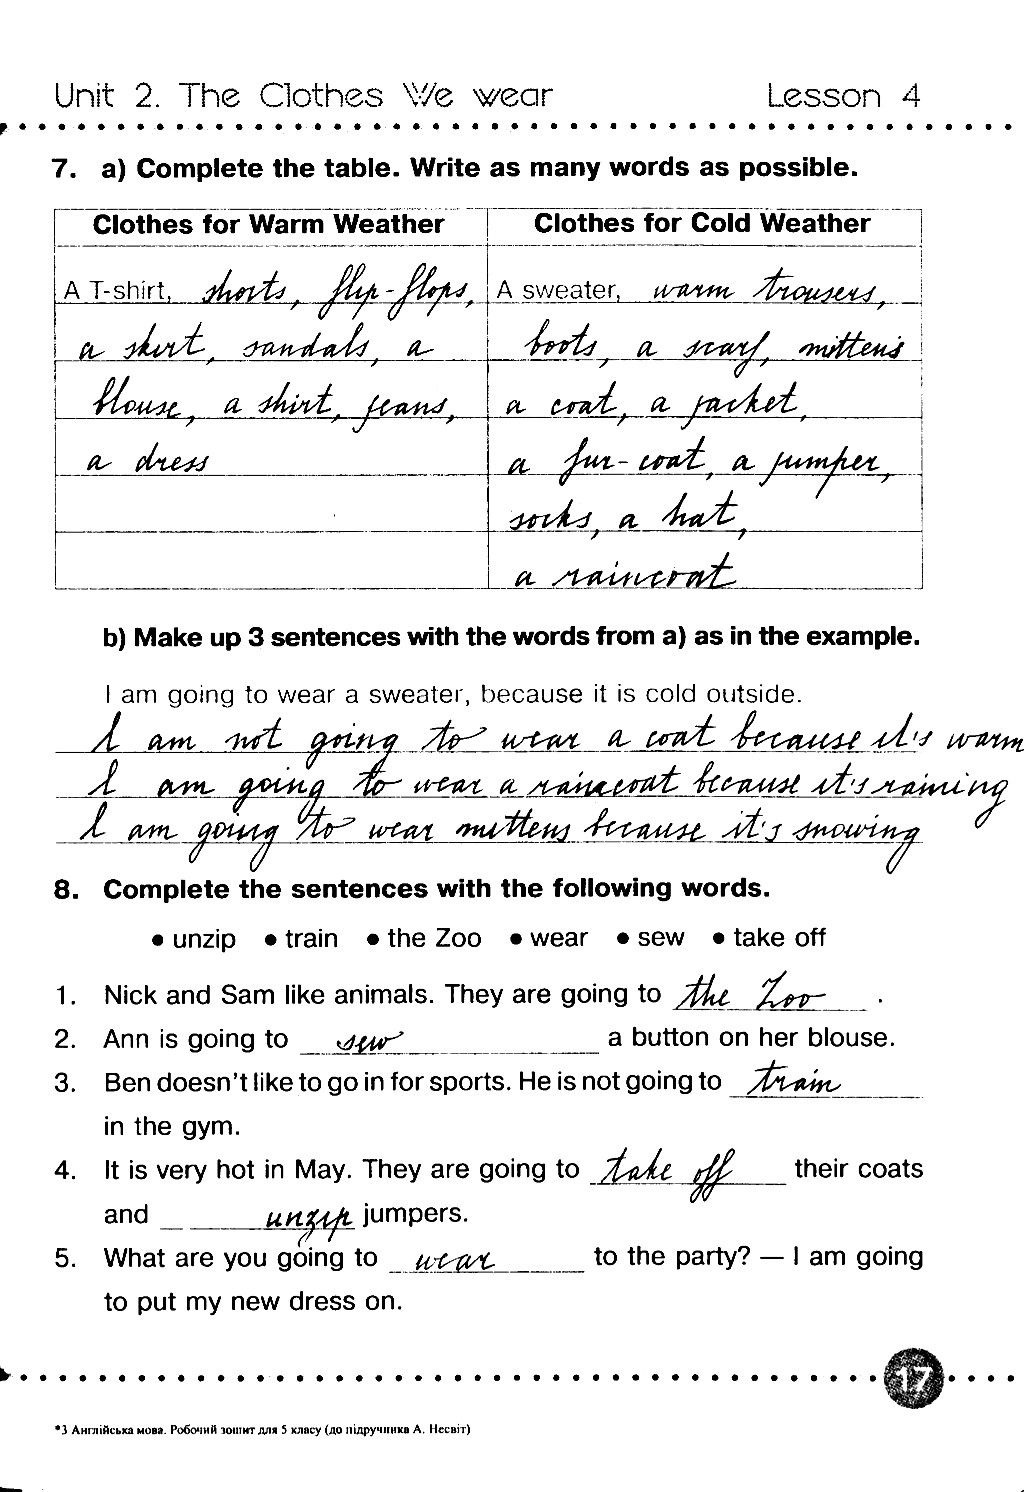 Unit 2. The Clothes We wear Lesson 4
7. a) Complete the table. Write as many words as possible.
Clothes for Warm Weather Clothes for Cold Weather
A T-shirt, shorts, flip-flops, A sweater, warm trousers,
a skirt, sandals, a boots, a scarf, mittens
blouse, a shirt, jeans, a coat, a jacket,
a dress a fur-coat, a jumper,
socks, a hat,
a raincoat
b) Make up 3 sentences with the words from a) as in the example.
I am going to wear a sweater, because it is cold outside.
I am not going to wear a coat because it's warm
I am going to wear a raincoat because it's raining
I am going to wear mittens because it's snowing
8. Complete the sentences with the following words.
● unzip ● train ● the Zoo ● wear ● sew ● take off
1. Nick and Sam like animals. They are going to the Zoo .
2. Ann is going to sew a button on her blouse.
3. Ben doesn't like to go in for sports. He is not going to train
in the gym.
4. It is very hot in May. They are going to take off their coats
and unzip jumpers.
5. What are you going to wear to the party? — I am going
to put my new dress on.
17
*3 Англійська мова. Робочий зошит для 5 класу (до підручника А. Несвіт)